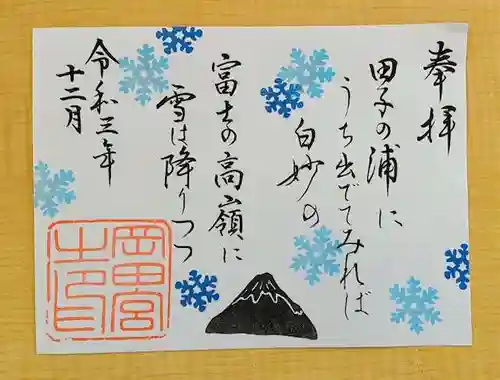 奉拝
田子の浦に
うち出でてみれば
白妙の
富士の高嶺に
雪は降りつつ
令和三年
十二月
岡田宮